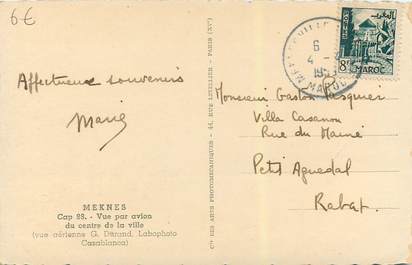 6€
Affectueux souvenirs
Marie
MEKNES
Cap 88. - Vue par avion
du centre de la ville
(vue aérienne G. Durand, Labophoto
Casablanca)
Cie DES ARTS PHOTOMÉCANIQUES - 44, RUE LETELLIER - PARIS (XVe)
6
4 -
MAROC
8F
MAROC
Monsieur Gaston Pasquier
Villa Casanova
Rue du Maine
Petit Aguedal
Rabat